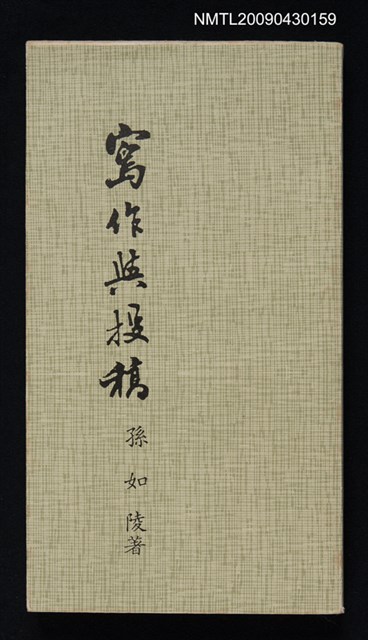 NMTL20090430159
寫作與投稿
孫如陵著